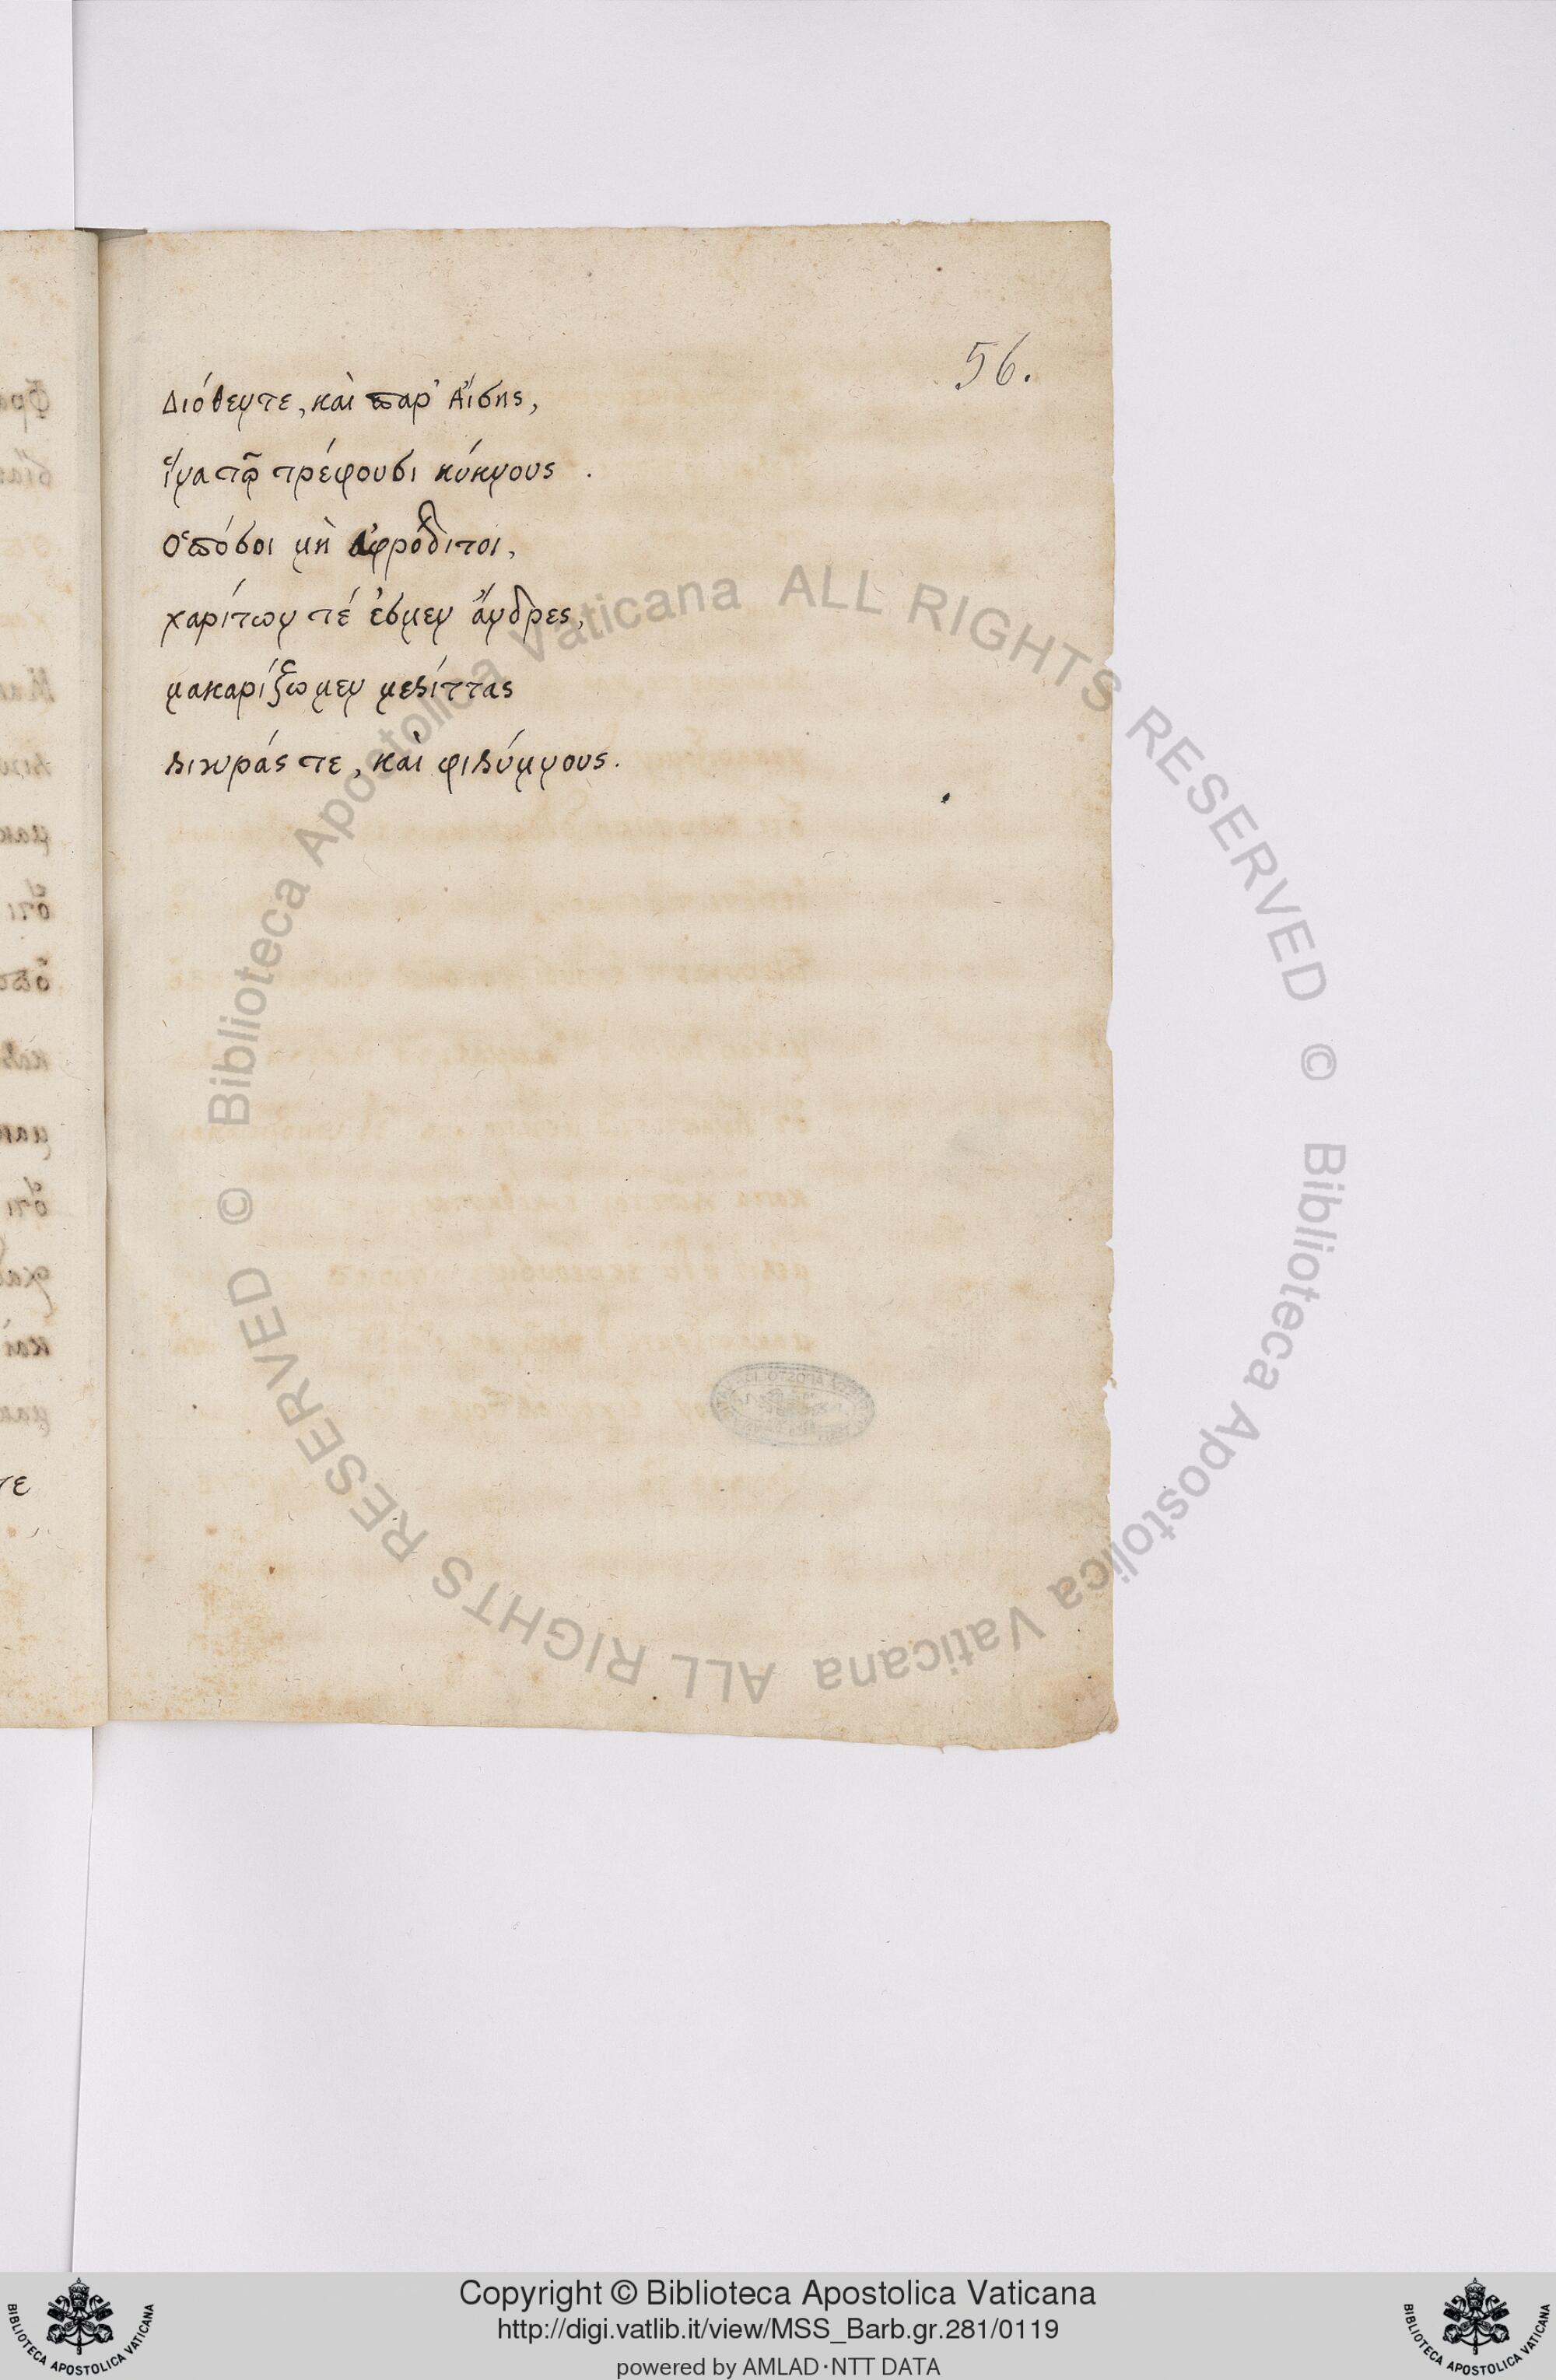 56.
Διόθεντε, καὶ παρ' Αἴσης,
ἵνα τῷ τρέφουσι κύκνους.
Ὁπόσοι μὴ ἀφρόδιτοι,
χαρίτων τέ ἐσμεν ἄνδρες,
μακαρίζωμεν μελίττας
λιγυράς τε, καὶ φιλύμνους.
τε
© Biblioteca Apostolica Vaticana ALL RIGHTS RESERVED © Biblioteca Apostolica Vaticana ALL RIGHTS RESERVED
Copyright © Biblioteca Apostolica Vaticana
http://digi.vatlib.it/view/MSS_Barb.gr.281/0119
powered by AMLAD·NTT DATA
BIBLIOTECA APOSTOLICA VATICANA
BIBLIOTECA APOSTOLICA VATICANA